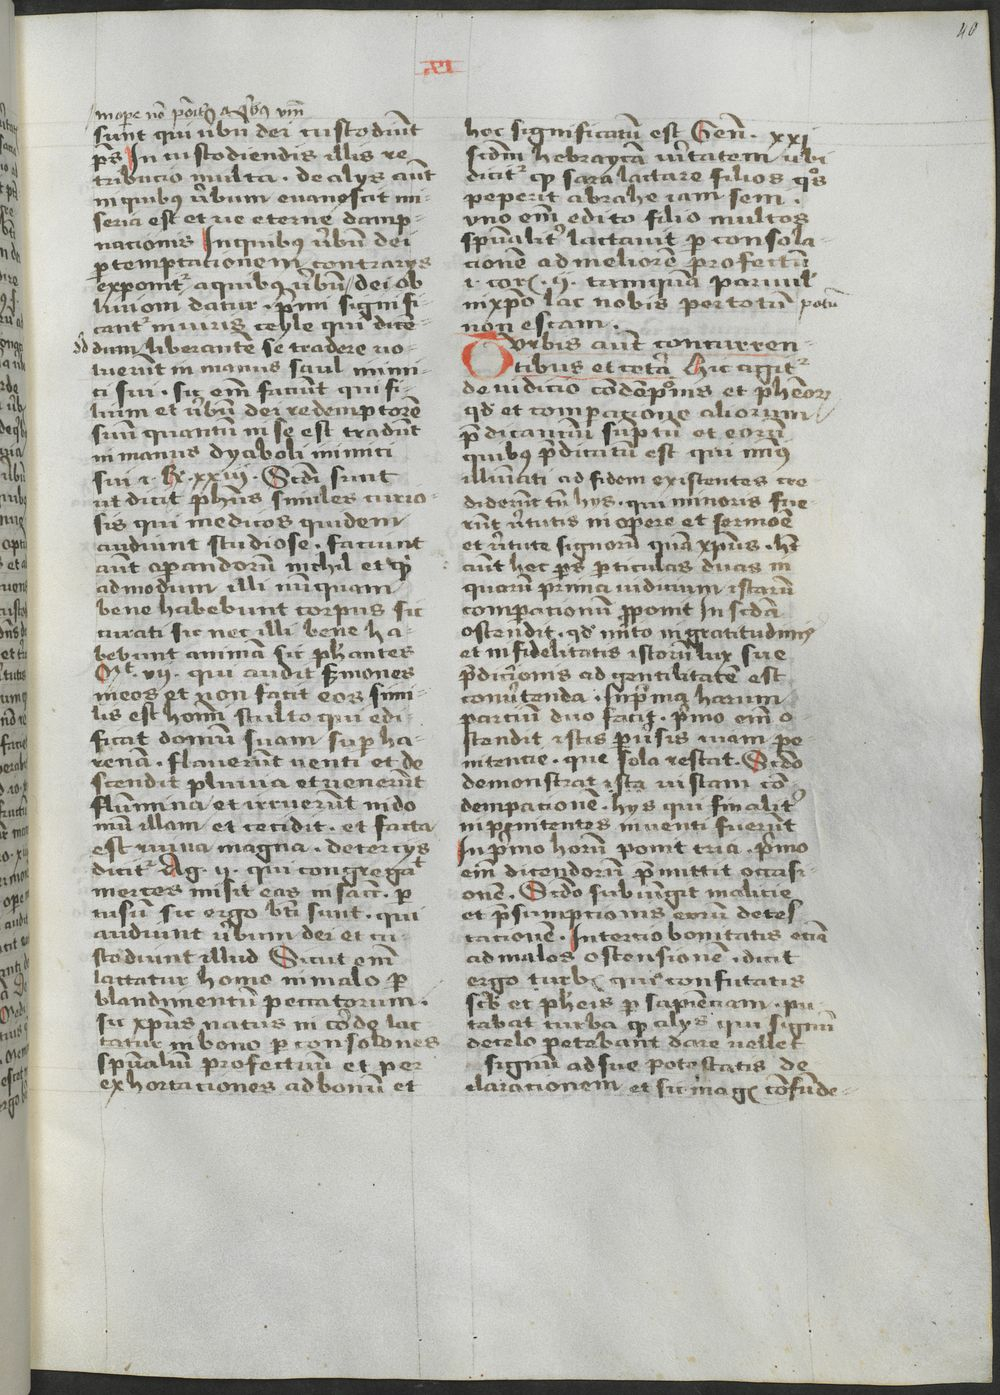 40
XI
in opere
sunt qui ubu dei custodiunt
ps In custodiendis illis re
tribucio multa . de alys aut
in quibus ubum evanescit mi-
seria est et ve eterne damp-
nacionis In quibus ubu dei
p temptacionem contrarys
exponit a quibus ubum dei ob
livioni datur . pmi signifi-
cant in viris ceyle qui dice-
dd dum liberante se tradere vo-
luerunt in manus saul inimi-
ci sui . sic em faciunt qui fi-
lium et ubum dei redemptore
suu quantum in se est tradut
in manus dyaboli inimici
sui 1 . R . xxiij . Scdi sunt
ut dicit phus similes curio-
sis qui medicos quidem
audiunt studiose . faciunt
aut operandoru nichil et
admodum illi nuquam
bene habebunt corpus sic
curati sic nec illi bene ha-
bebunt anima sic phantes
Mt . vij . qui audit sermones
meos et non facit eos simi-
lis est homi stulto qui edi-
ficat domu suam sup ha-
rena . flaverut venti et de
scendit pluvia et venerut
flumina et irruerut in do
mu illam et cecidit . et facta
est ruina magna . de tercys
dicit Ag . ij . qui congregat
merces misit eas in sacc . p
tusu sic ergo bti sunt . qui
audiunt ubum dei et cu-
stodiunt illud Sicut em
lactatur homo in malo p
blandimentu peccatorum .
sic xpus natus in corde lac-
tatur in bono p consolones
spualium profectuu et per
exhortaciones ad bonu et
hoc significatu est Gen . xxi
scdm hebrayca vitatem ubi
dicit q sara lactare filios qos
peperit abrahe iam sem .
vno em edito filio multos
spualit lactavit p consola-
cione ad meliore profectu
1 . cor . ij . tamqua parvul
in xpo lac nobis porto tu potu
non escam .
Turbis aut concurren-
tibus et cetera Hic agit
de iudicio
qd et compacione aliorum
pdicantium suptu et eoru
quibus pdicatu est qui minus
illuiati ad fidem existentes cre
diderut tn hys . qui minoris fue
rut vtutis in opere et sermoe
et vtute signoru qua xpus . ht
aut hec ps pticulas duas in
quaru prima iudicium istaru
compacionum pponit In scda
ostendit . qd mito ingratitudinis
et infidelitatis istoru lux sue
pdicionis ad gentilitate est
comutenda . In pma harum
partiu duo facit . pmo em o-
stendit istis puisis viam pe-
nitencie . que sola restat . Scdo
demonstrat ista iustam co-
dempacione . hys qui finalit
inpenitentes inventi fuerut
In pmo horu ponit tria . pmo
em dicendoru pmittit occasi-
one . Scdo subiungit malicie
et psumpcionis eoru detes
tacione . In tercio bonitatis ecia
ad malos ostensione . dicit
ergo turb quis confutatis
scb et pheis p sapienciam . pu-
tabat turba q alys qui signu
de celo petebant dare vellet
signu ad sue potestatis de
claracionem et sic mag cofunde-